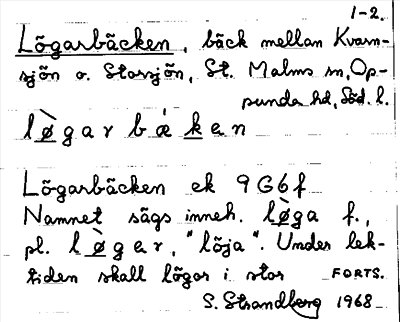 1-2.
Lõgarbäcken, bäck mellan Kvarn-
sjön o. Storsjön, St. Malms sn, Op-
punda hd, Söd. l.
l ø̀ g a r b ǽ k e n
Lõgarbäcken ek 9G6f
Namnet sägs inneh. lø̀ga f.,
pl. l ø̀ g e r, "löja". Under lek-
tiden skall lögor i stor
FORTS.
S. Strandberg 1968